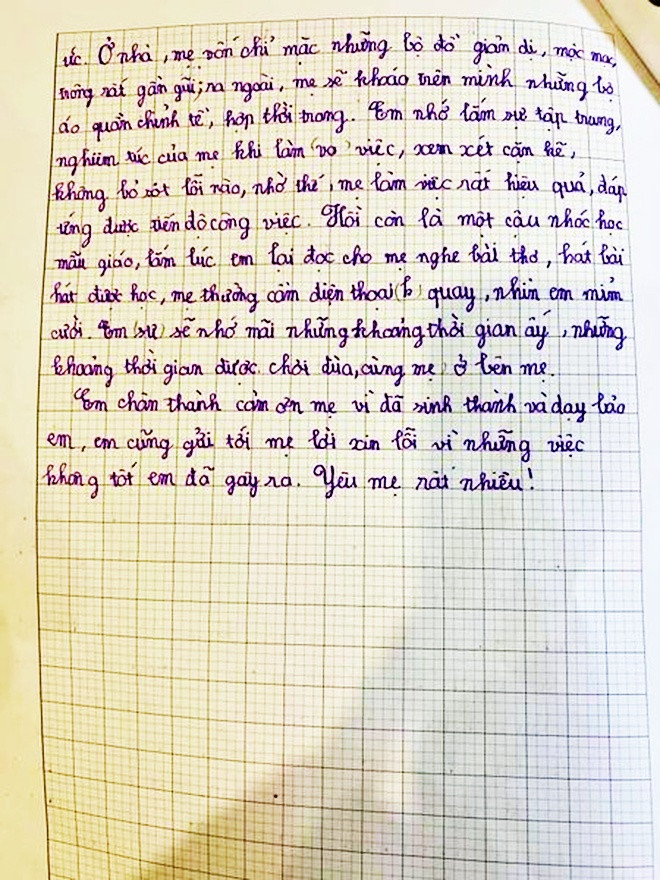 ức. Ở nhà, mẹ vốn chỉ mặc những bộ đồ giản dị, mộc mạc,
trông rất gần gũi; ra ngoài, mẹ sẽ khoác trên mình những bộ
áo quần chỉnh tề, hợp thời trang. Em nhớ lắm sự tập trung,
nghiêm túc của mẹ khi làm (vo) việc, xem xét cặn kẽ,
không bỏ sót lỗi nào, nhờ thế, mẹ làm việc rất hiệu quả, đáp
ứng được tiến độ công việc. Hồi còn là một cậu nhóc học
mẫu giáo, lắm lúc em lại đọc cho mẹ nghe bài thơ, hát bài
hát được học, mẹ thường cầm điện thoại (h) quay, nhìn em mỉm
cười. Em (sự) sẽ nhớ mãi những khoảng thời gian ấy, những
khoảng thời gian được chơi đùa, cùng mẹ, ở bên mẹ.
Em chân thành cảm ơn mẹ vì đã sinh thành và dạy bảo
em, em cũng gửi tới mẹ lời xin lỗi vì những việc
không tốt em đã gây ra. Yêu mẹ rất nhiều!